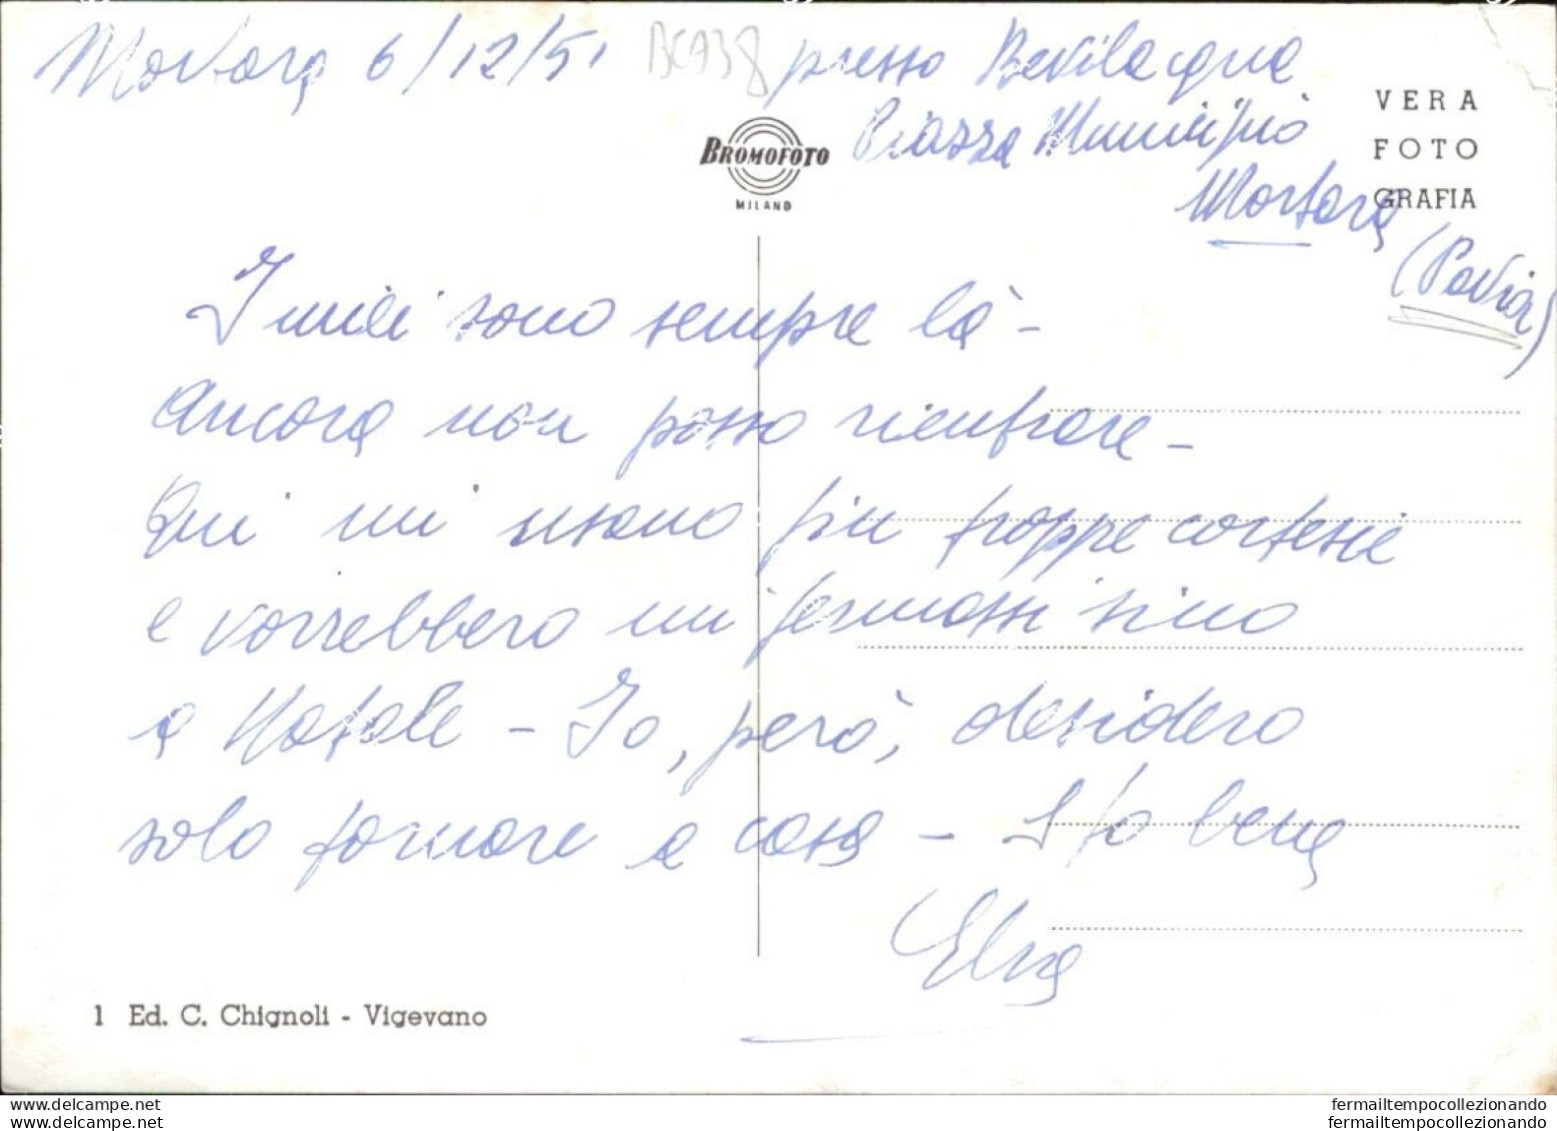 Mortara 6/12/51
BCA738
presso Bevilacqua
Piazza Municipio
Mortara
(Pavia)
BROMOFOTO
MILANO
VERA
FOTO
GRAFIA
I miei sono sempre là -
Ancora non posso rientrare -
Qui mi usano fin troppe cortesie
e vorrebbero mi fermassi sino
a Natale - Io, però, desidero
solo tornare a casa - Sto bene
Elsa
1 Ed. C. Chignoli - Vigevano
www.delcampe.net
www.delcampe.net
fermailtempocollezionando
fermailtempocollezionando